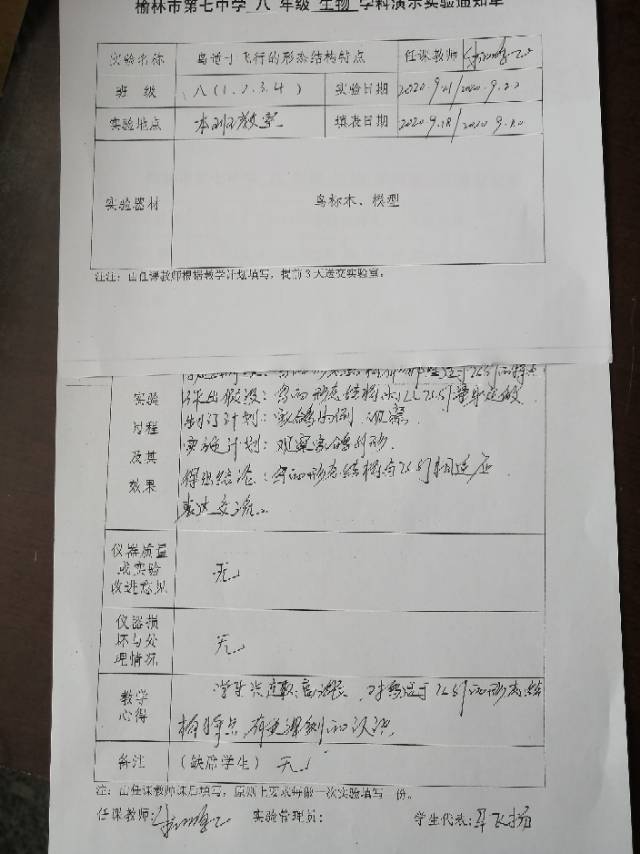 榆林市第七中学 八 年级 生物 学科演示实验通知单
实验名称 鸟适于飞行的形态结构特点 任课教师
班 级 八(1、2、3、4) 实验日期 2020.9.21/2020.9.22
实验地点 本班教室 填表日期 2020.9.18/2020.9.20
实验器材 鸟标本、模型
注注：由任课教师根据教学计划填写，提前3天送交实验室。
实验过程及其效果
作出假设：鸟的形态结构
制订计划：家鸽为例，观察
实施计划：观察家鸽外形
得出结论：鸟的形态结构与飞行相适应
表达交流。
仪器质量或实验改进意见 无
仪器损坏与处理情况 无
教学心得 对鸟适于飞行的形态结
构特点有更深刻的认识。
备注 (缺席学生) 无
注：由任课教师课后填写，原则上要求每做一次实验填写一份。
任课教师： 实验管理员： 学生代表：